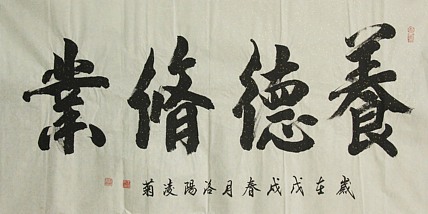 養德脩業
歲在戊戌春月洛陽凌菊